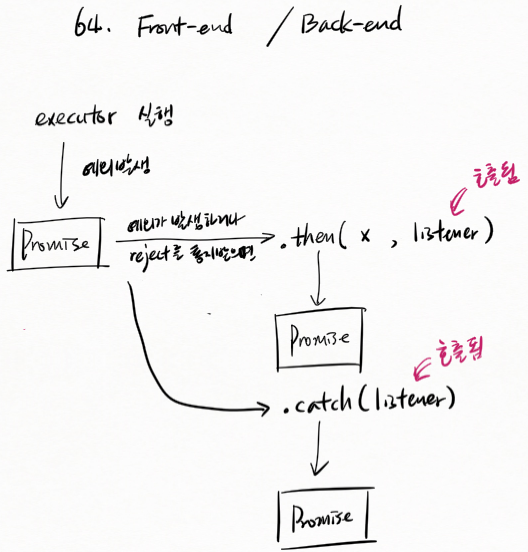 64. Front-end / Back-end
executor 실행
예외발생
호출됨
Promise
예외가 발생하거나
reject를 통지받으면
.then( x , listener)
Promise
호출됨
.catch(listener)
Promise